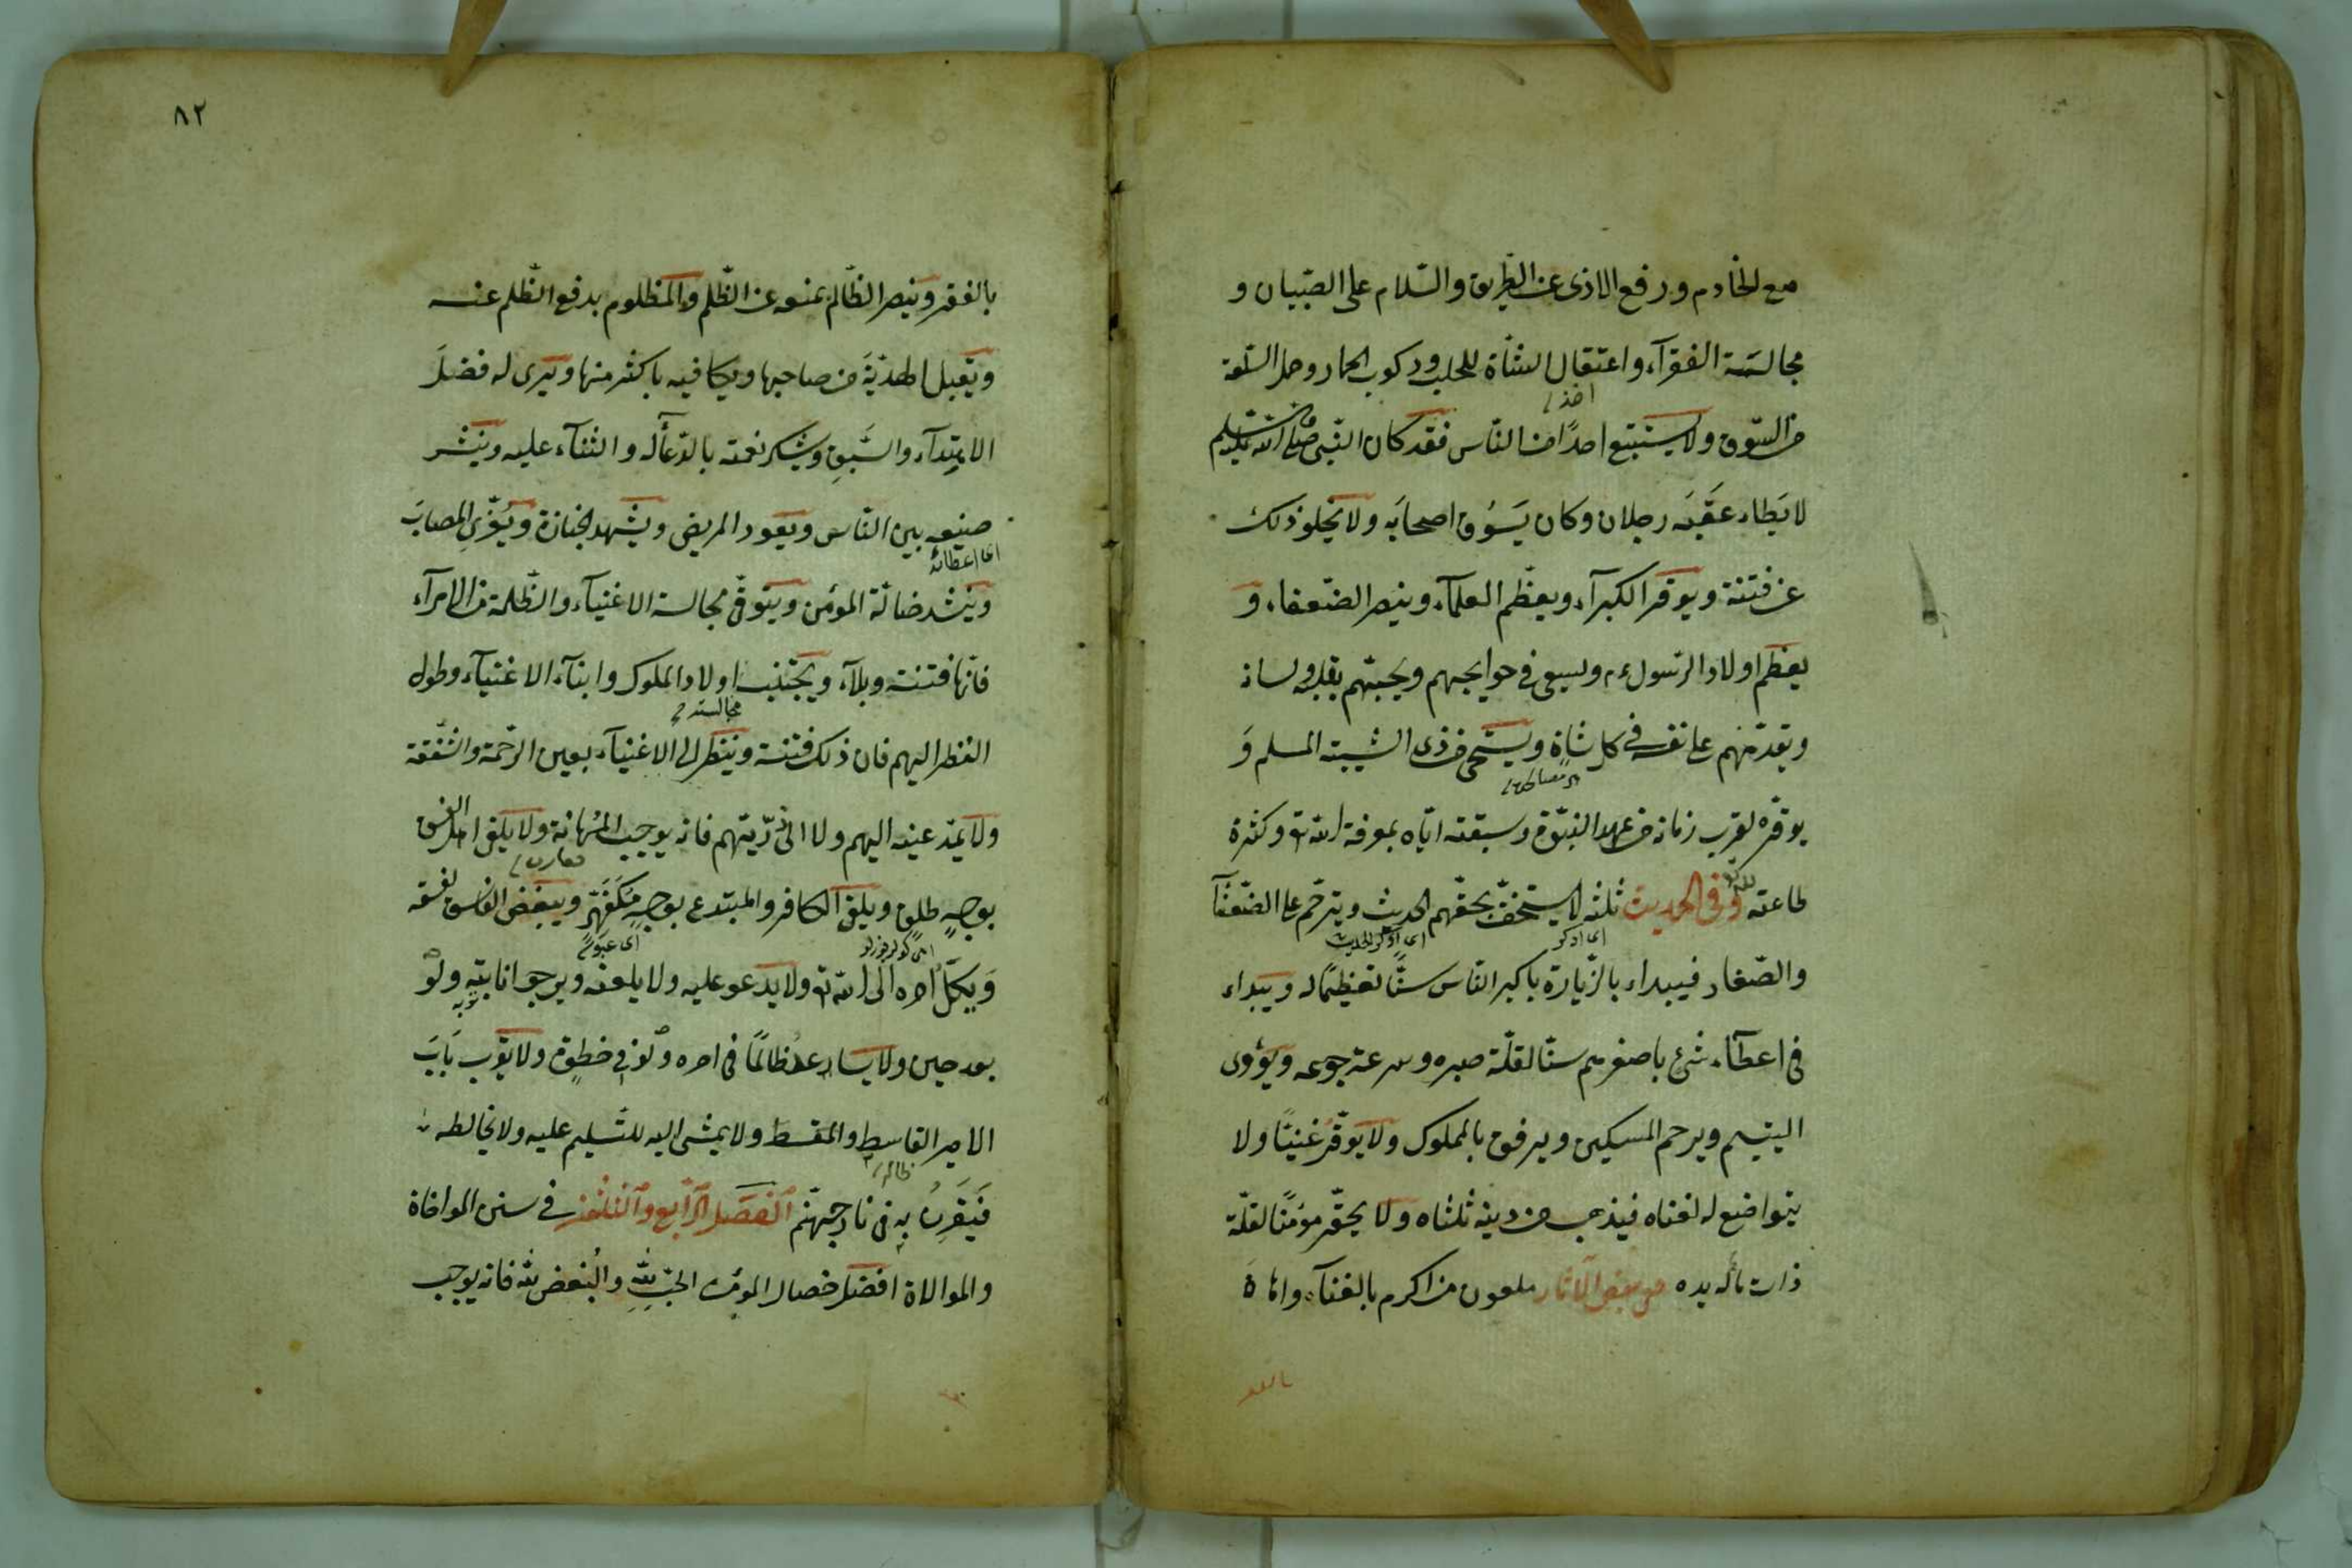 مع الخادم ورفع الاذى عن الطريق والسّلام على الصّبيان و
مجالسة الفقرآء واعتقال الشاة للحلب وركوب الحمار وحمل السّلعة
من السّوق ولا يستتبع احدًا من النّاس فقد كان النّبى صلى الله عليه وسلم
لا يَطاء عَقِبَه رجلان وكان يَسُوق اصحابَه ولا يخلو ذلك
عن فتنة ويوقر الكبرآء ويعظّم العلمآء وينصر الضّعفاء و
يعظّم اولاد الرّسول ءم ويسعى فى حوايجهم ويحبّهم بقلبه ولسانه
ويقدّمهم على نفسه فى كل شاة ويستحى من ذى الشيبة المسلم وَ
يوقّره لقرب زمانه من عهد النبوّة وسبقته ايّاه بمعرفة الله تع وكثرة
طاعته لله تع وفى الحديث ثلثه لا يستخفّ بحقّهم الحديث ويترحّم على الضّعفآ
اى اذكر
والصّغار فيبداء بالزّيارة باكبر النّاس سنًّا تعظيمًا له ويبداء
فى اعطآء شئ باصغرهم سنّا لقلّة صبره وسرعة جوعه ويؤوى
اليتيم ويرحم المسكين ويرفق بالمملوك ولا يوقّر غنيّا ولا
يتواضع له لغناه فيذهب من دينه ثلثاه ولا يحقّر مؤمنًا لقلّة
ذات يده من بعض الآثار ملعون من اكرم بالغنآء واهانَ
بالفقر
٨٢
بالفقر وينصر الظّالم بمنعه عن الظّلم والمظلوم بدفع الظّلم عنه
ويقبل الهديّةَ من صاحبها ويكافيه باكثر منها ويرى له فضلَ
الابتدآء والسَّبقِ ويشكر نعمته بالدّعآء له والثنآء عليه وينشر
صنيعه بين النّاس ويعود المريض ويشهد الجنازة ويُعزّى المصابَ
اى اعطائه
وينشد ضالّة المؤمن ويتوقّى مجالسة الاغنيآء والظّلمة من الامرآء
فانّها فتنة وبلآء ويجتنب اولاد الملوك وابنآء الاغنيآء وطول
مجالسة
النظر اليهم فان ذلك فتنة وينظر الى الاغنيآء بعين الرّحمة والشّفقة
ولا يمدّ عينه اليهم ولا الى ذرّيتهم فانه يوجب المهانة ولا يلقى اهل الفسق
بوجهٍ طلقٍ ويلقى الكافر والمبتدع بوجهٍ مُكفَهِرٍّ ويبغض الفاسق لفسقه
وَيَكِلُ امره الى الله تع ولا يدعو عليه ولا يلعنه ويرجو انابته ولو
بعد حين ولا يساعد ظالمًا فى امره ولو فى خطوة ولا يقرب بَابَ
الامير القاسط والمقسط ولا يمشى اليه للتّسليم عليه ولا يخالطه
ظالم
فَيَقَرنُ به فى نار جهنّم الفصل الرّابع والثلثون فى سنن المواخاة
والموالاة افضل خصال المؤمن الحبّ لله والبُغض لله فانه يوجب